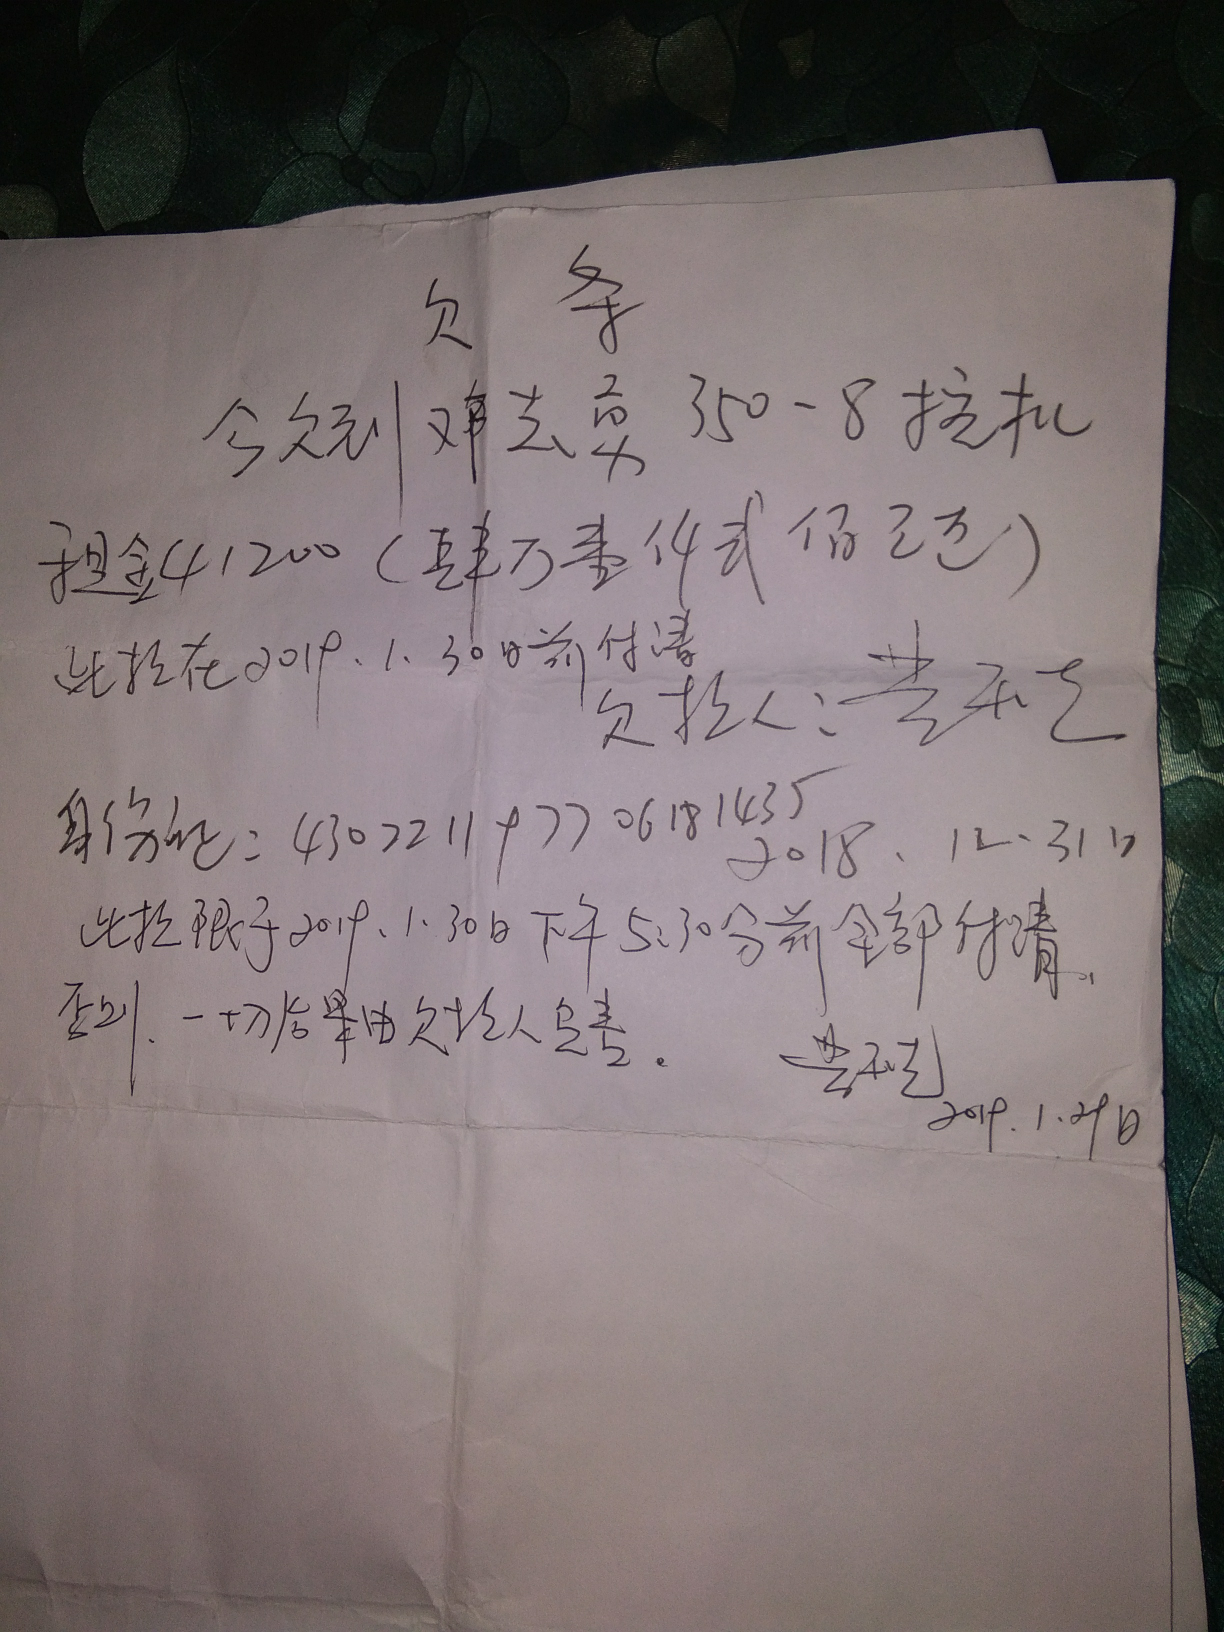 欠条
今欠到邓志勇350-8挖机
租金41200(肆万壹仟贰佰元正)
此款在2019.1.30日前付清
欠款人:
身份证:430722197706181435
2018.12.31日
此款限于2019.1.30日下午5:30分前全部付清.
否则.一切后果由欠款人负责。
2019.1.29日